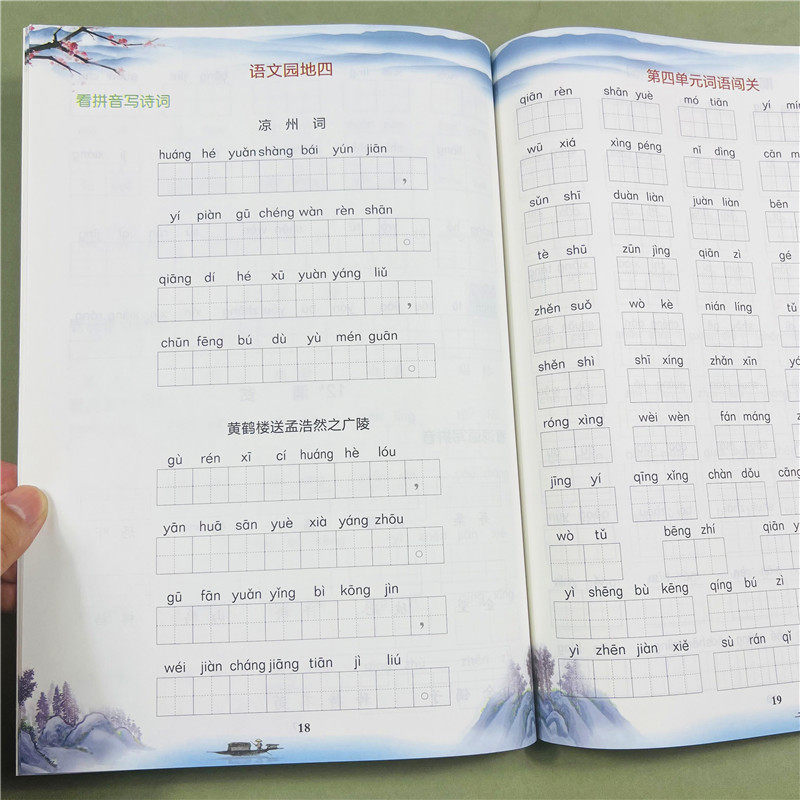 语文园地四
看拼音写诗词
凉 州 词
huáng hé yuǎn shàng bái yún jiān
，
yí piàn gū chéng wàn rèn shān
。
qiāng dí hé xū yuàn yáng liǔ
，
chūn fēng bú dù yù mén guān
。
黄鹤楼送孟浩然之广陵
gù rén xī cí huáng hè lóu
，
yān huā sān yuè xià yáng zhōu
。
gū fān yuǎn yǐng bì kōng jìn
，
wéi jiàn cháng jiāng tiān jì liú
。
18
第四单元词语闯关
qiān rèn shān yuè mó tiān yí
wū xiá xìng péng nǐ dìng cān
sǔn shī duàn liàn juàn liàn bēn
tè shū zūn jìng qiān zì gé
zhěn suǒ wò kè nián líng
shěn shì shī xíng zhǎn xīn
róng xìng wèi wèn fán máng
jīng yí qīng xǐng chàn dǒu cāng
wò tǔ bēng zhí qiān
yì shēng bù kēng qíng bú zì
yì zhēn jiàn xiě sù rán qǐ
19